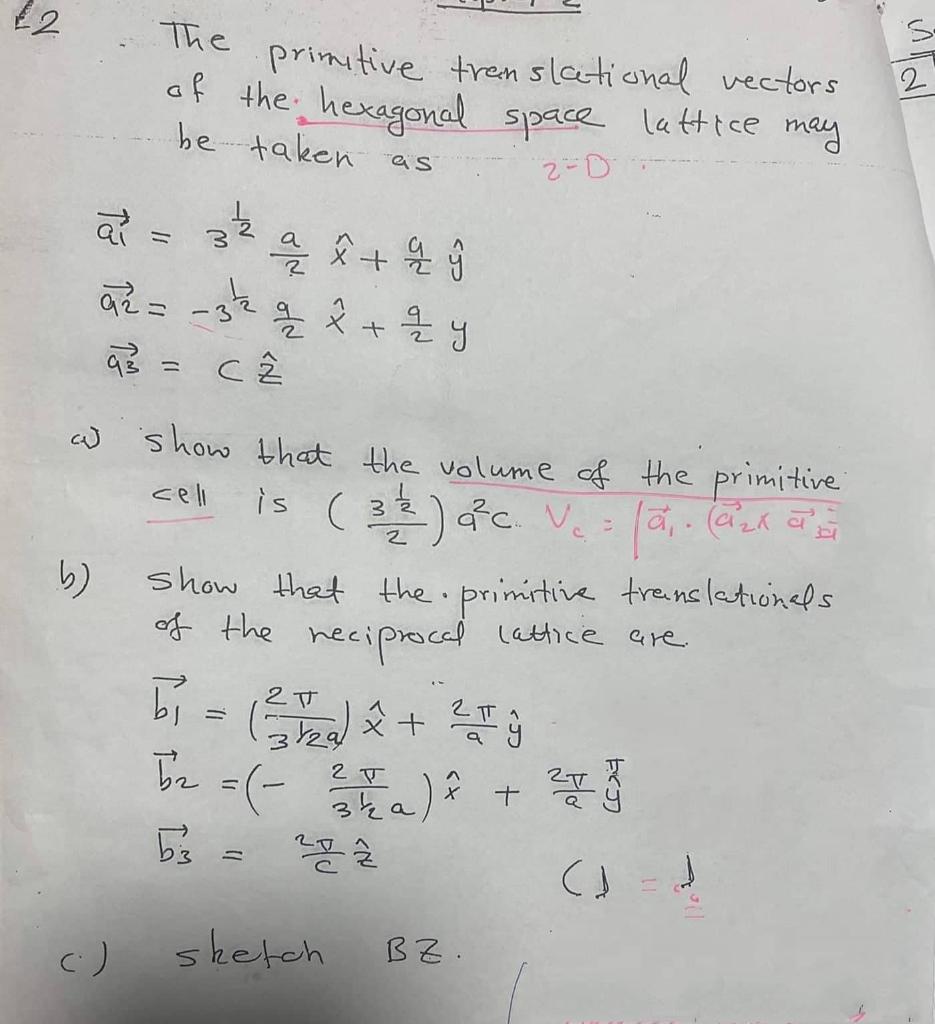 2
The primitive translational vectors
of the hexagonal space lattice may
be taken as
2-D
S
2
a⃗1 = 3^½ a/2 x̂ + a/2 ŷ
a⃗2 = -3^½ a/2 x̂ + a/2 y
a⃗3 = c ẑ
a) show that the volume of the primitive
cell is (3^½/2) a²c. Vc = |a⃗1 · (a⃗2 x a⃗3
b) show that the primitive translationals
of the reciprocal lattice are
b⃗1 = (2π/3^½a) x̂ + 2π/a ŷ
b⃗2 = (- 2π/3^½a) x̂ + 2π/a ŷ
b⃗3 = 2π/c ẑ
c) sketch BZ.